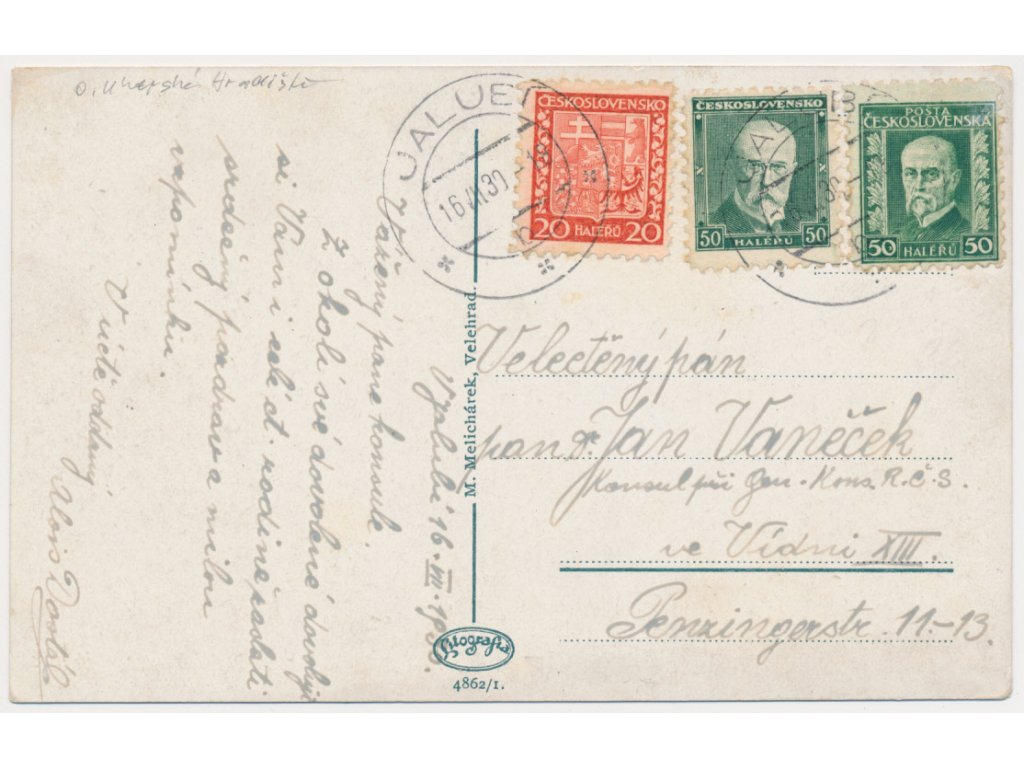 o. Uherské Hradiště
JALUBÍ
16.VII.30
ČESKOSLOVENSKO
20 HALÉŘŮ 20
ČESKOSLOVENSKO
50 HALÉŘŮ 50
POŠTA
ČESKOSLOVENSKÁ
50 HALÉŘŮ 50
V Jalubí 16.VII.1930.
Vážený pane konsule.
Z okolí své dovolené dovoluji
si Vám i celé ct. rodině zaslati
srdečný pozdrav a milou
vzpomínku.
V úctě oddaný
Alois
M. Melichárek, Velehrad.
4862/1.
Velectěný pán
pan Jan Vaněček
Konsul při Gen. Kons. R.Č.S.
ve Vídni XIII.
Penzingerstr. 11-13.